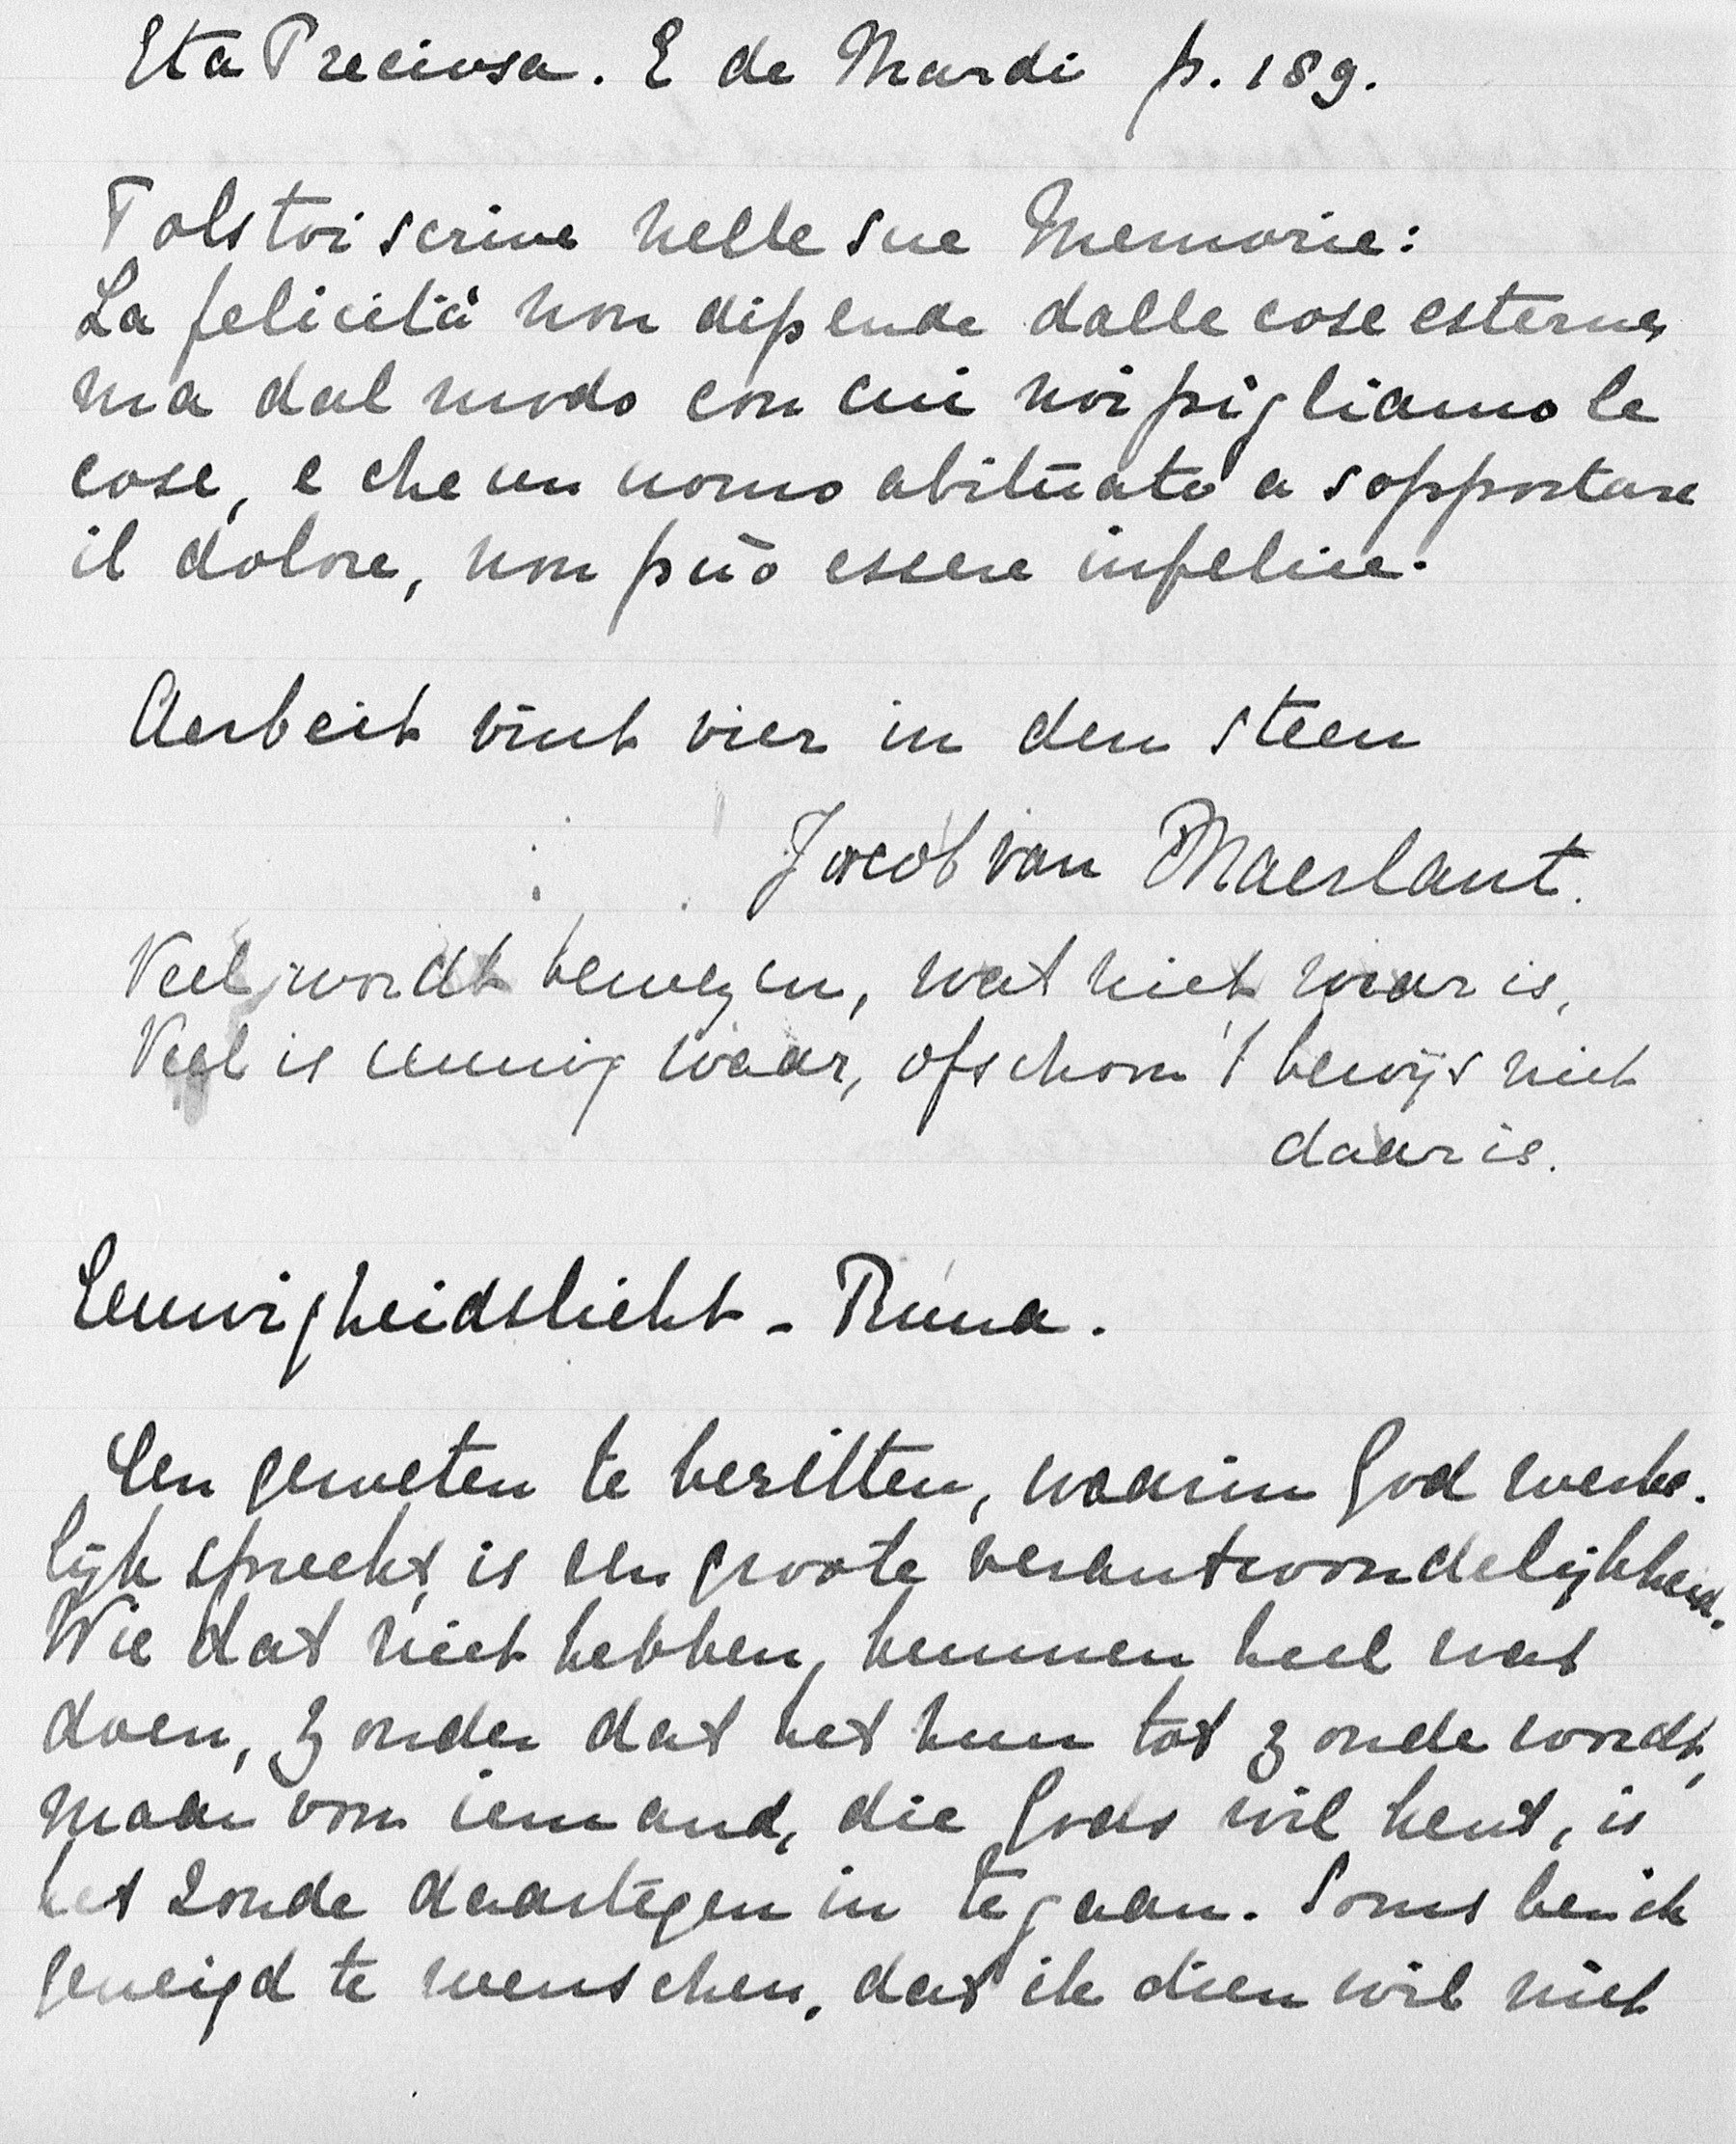 Eta Preciosa. E de Mardi p. 189.
Tolstoi scrive nelle sue Memorie:
La felicità non dipende dalle cose esterne,
ma dal modo con cui noi pigliamo le
cose, e che un uomo abituato a sopportare
il dolore, non può essere infelice.
Aerbeit vint vier in den steen
Jacob van Maerlant.
Veel wordt bewezen, wat niet waar is,
Veel is eeuwig waar, ofschoon 't bewijs niet
daar is.
Eeuwigheidslicht - Runa.
Een geweten te bezitten, waarin God werke-
lijk spreekt, is een groote verantwoordelijkheid.
Wie dat niet hebben, kunnen heel wat
doen, zonder dat het hun tot zonde wordt,
maar voor iemand, die Gods wil kent, is
het zonde daartegen in te gaan. Soms ben ik
geneigd te wenschen, dat ik dien wil niet